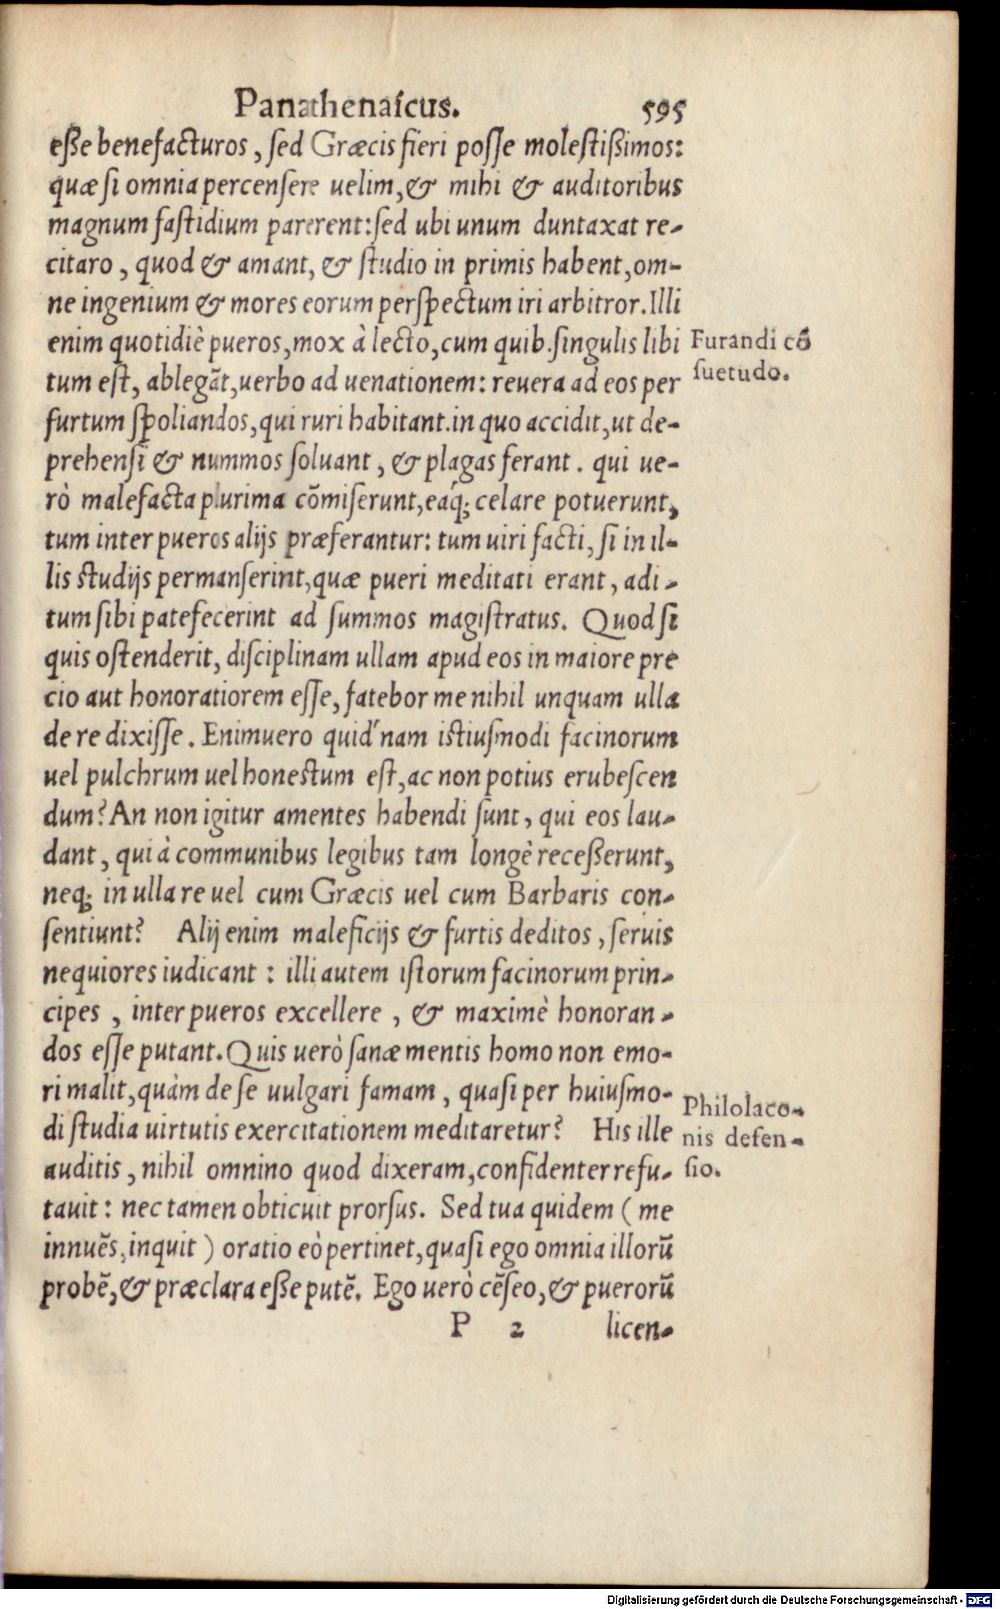 Panathenaicus. 595
eſſe benefacturos, ſed Græcis fieri poſſe moleſtiſſimos:
quæ ſi omnia percenſere uelim, & mihi & auditoribus
magnum faſtidium parerent: ſed ubi unum duntaxat re-
citaro, quod & amant, & ſtudio in primis habent, om-
ne ingenium & mores eorum perſpectum iri arbitror. Illi
enim quotidiè pueros, mox à lecto, cum quib. ſingulis libi
tum eſt, ablegãt, uerbo ad uenationem: reuera ad eos per
furtum ſpoliandos, qui ruri habitant. in quo accidit, ut de-
prehenſi & nummos ſoluant, & plagas ferant. qui ue-
rò malefacta plurima cõmiſerunt, eáq; celare potuerunt,
tum inter pueros alijs præferantur: tum uiri facti, ſi in il-
lis ſtudijs permanſerint, quæ pueri meditati erant, adi-
tum ſibi patefecerint ad ſummos magiſtratus. Quod ſi
quis oſtenderit, diſciplinam ullam apud eos in maiore pre
cio aut honoratiorem eſſe, fatebor me nihil unquam ulla
de re dixiſſe. Enimuero quid'nam iſtiuſmodi facinorum
uel pulchrum uel honeſtum eſt, ac non potius erubeſcen
dum? An non igitur amentes habendi ſunt, qui eos lau-
dant, qui à communibus legibus tam longè receſſerunt,
neq; in ulla re uel cum Græcis uel cum Barbaris con-
ſentiunt? Alij enim maleficijs & furtis deditos, ſeruis
nequiores iudicant: illi autem iſtorum facinorum prin-
cipes, inter pueros excellere, & maximè honoran-
dos eſſe putant. Quis uerò ſanæ mentis homo non emo-
ri malit, quàm de ſe uulgari famam, quaſi per huiuſmo-
di ſtudia uirtutis exercitationem meditaretur? His ille
auditis, nihil omnino quod dixeram, confidenter refu-
tauit: nec tamen obticuit prorſus. Sed tua quidem (me
innuẽs, inquit) oratio eò pertinet, quaſi ego omnia illorũ
probẽ, & præclara eſſe putẽ. Ego uerò cẽſeo, & puerorũ
P 2 licen-
Furandi cõ
ſuetudo.
Philolaco-
nis defen-
ſio.
Digitalisierung gefördert durch die Deutsche Forschungsgemeinschaft - DFG